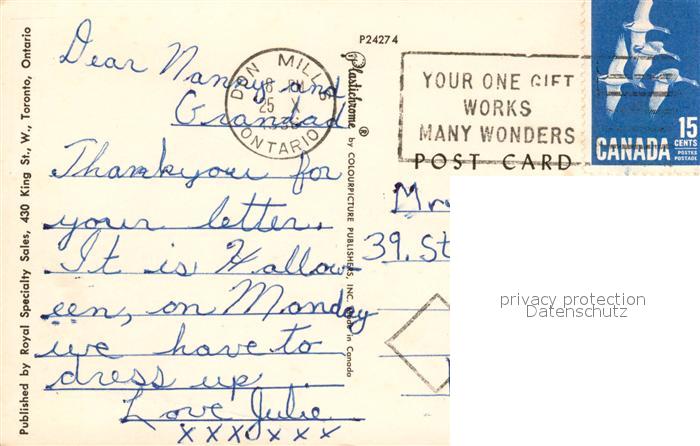 Published by Royal Specialty Sales, 430 King St., W., Toronto, Ontario
Dear Nanny and
Grandad
Thankyou for
your letter.
It is Hallow-
een, on Monday
we have to
dress up
Love Julie
x x x x x x x
P24274
Plastichrome ® by COLOURPICTURE PUBLISHERS, INC. Made in Canada
DON MILLS
8 PM
25 X
ONTARIO
YOUR ONE GIFT
WORKS
MANY WONDERS
POST CARD
CANADA 15
CENTS
POSTES
POSTAGE
39. St
privacy protection
Datenschutz